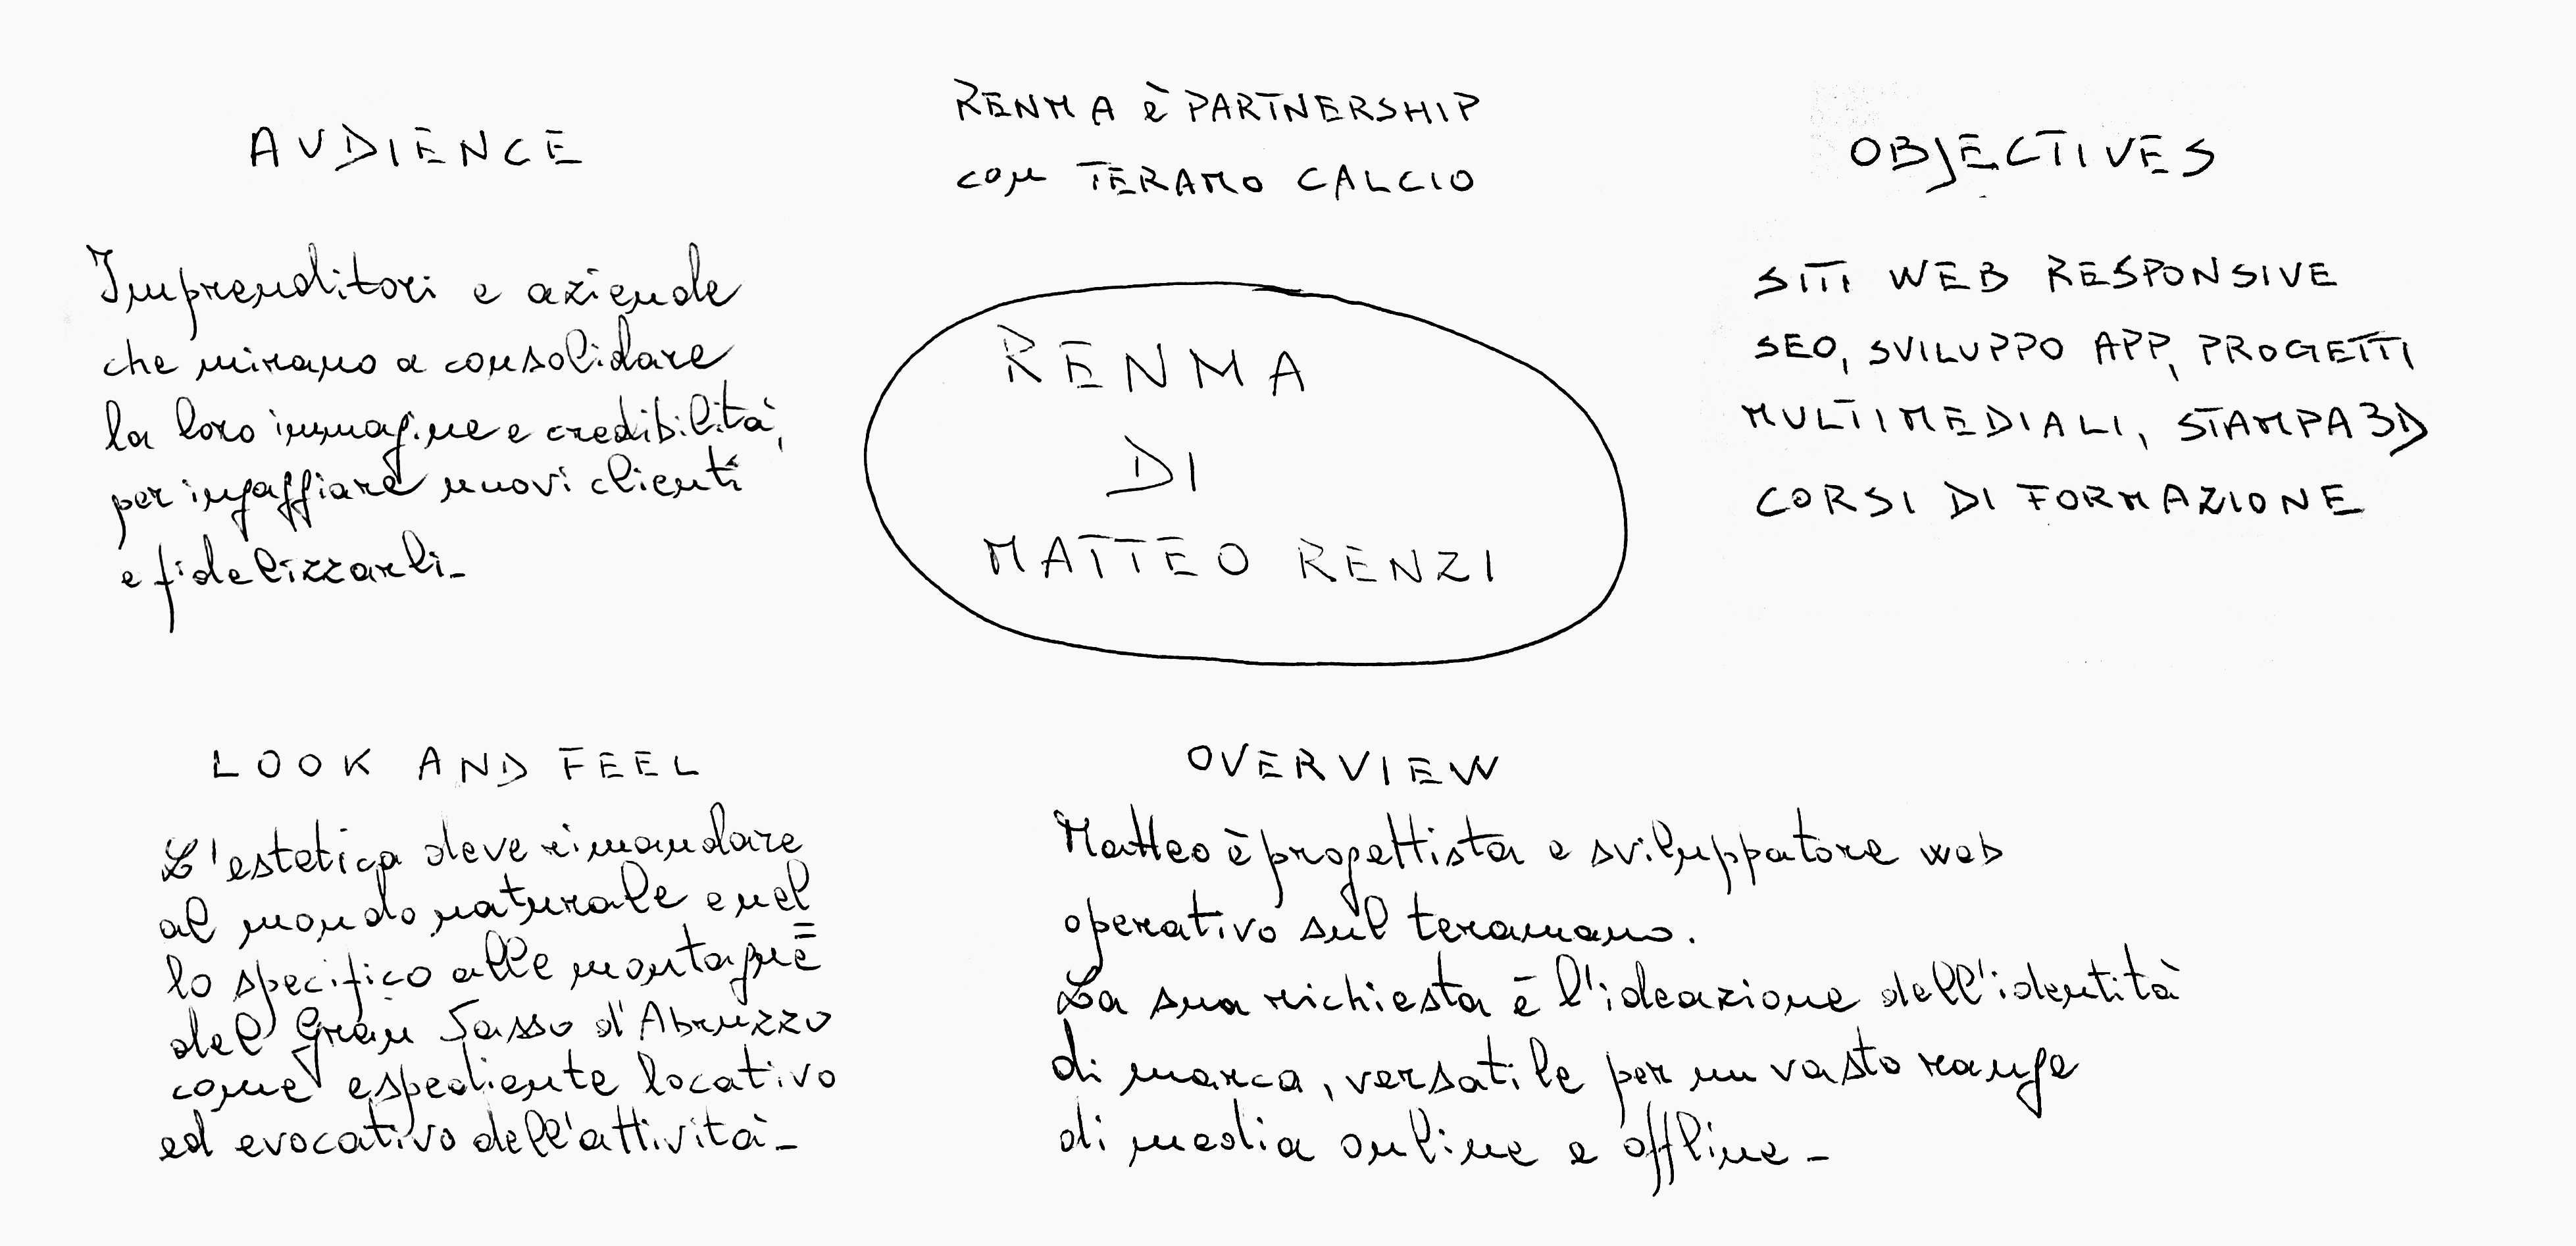 AUDIENCE
Imprenditori e aziende
che mirano a consolidare
la loro immagine e credibilità,
per ingaggiare nuovi clienti
e fidelizzarli_
RENMA è PARTNERSHIP
con TERAMO CALCIO
RENMA
DI
MATTEO RENZI
OBJECTIVES
SITI WEB RESPONSIVE
SEO, SVILUPPO APP, PROGETTI
MULTIMEDIALI, STAMPA 3D
CORSI DI FORMAZIONE
LOOK AND FEEL
L'estetica deve rimandare
al mondo naturale e nel
lo specifico alle montagne
del Gran Sasso d'Abruzzo
come espediente locativo
ed evocativo dell'attività_
OVERVIEW
Matteo è progettista e sviluppatore web
operativo sul teramano.
La sua richiesta è l'ideazione dell'identità
di marca, versatile per un vasto range
di media online e offline_